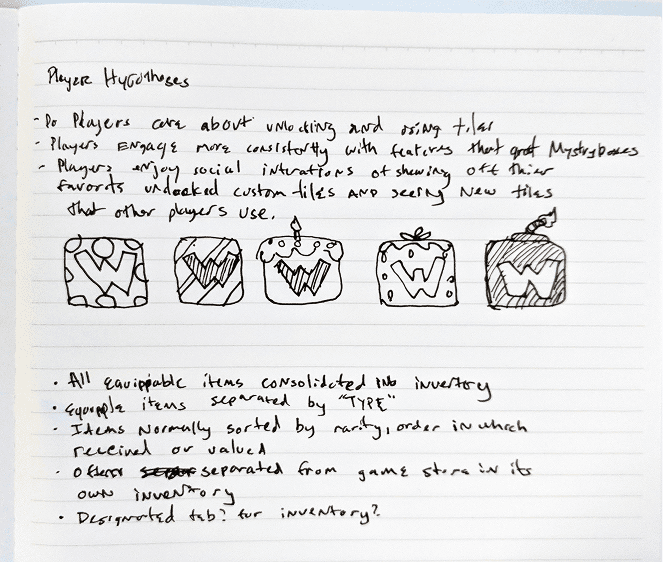 Player Hypotheses
- Do Players care about unlocking and using tiles
- Players Engage more consistently with features that grant Mystryboxes
- Players enjoy social interations of showing off thier
favorits unlocked custom tiles AND seeing New tiles
that other players use.
W W W W W
• All equippable items consolidated into inventory
• Equipple items separated by "TYPE"
• Items Normally sorted by rarity, order in which
received or valued
• Often separated from game store in its
own inventory
• Designated tab? for inventory?